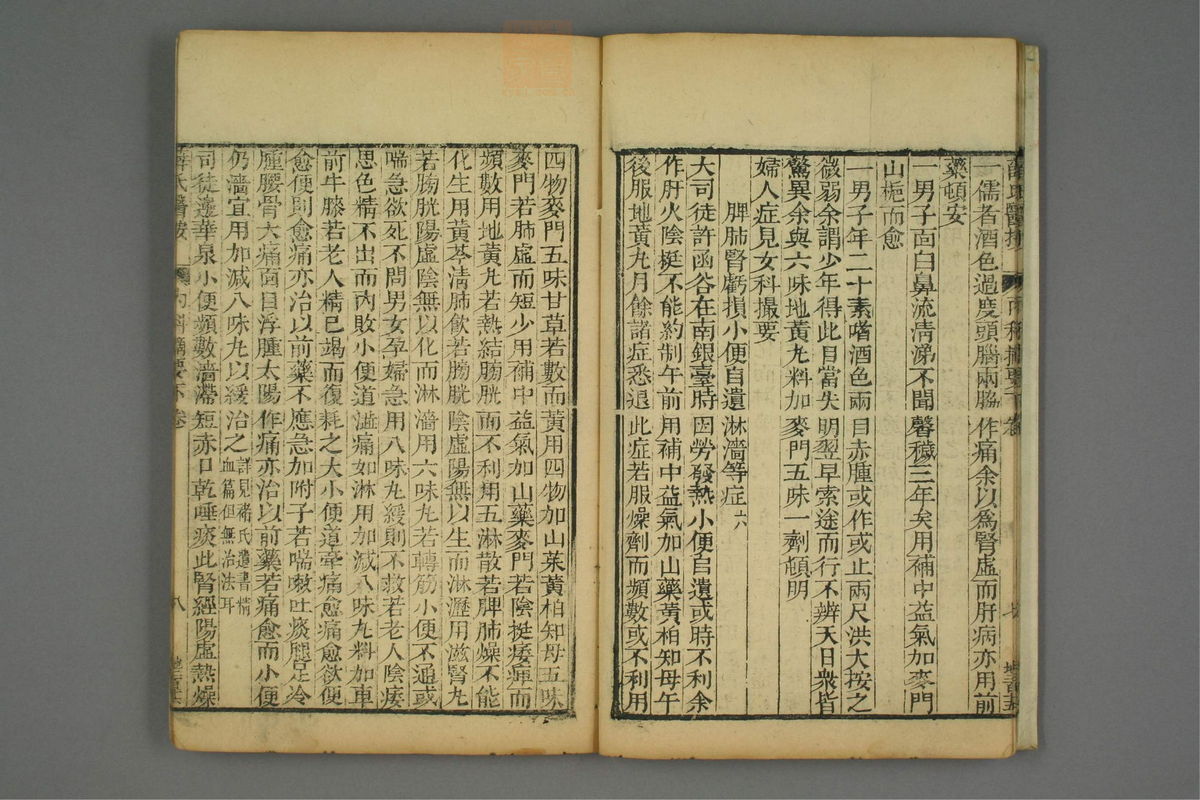 薛氏醫按 內科摘要下卷
一儒者酒色過度頭腦兩脇作痛余以爲腎虛而肝病亦用前
藥頓安
一男子面白鼻流清涕不聞馨穢三年矣用補中益氣加麥門
山梔而愈
一男子年二十素嗜酒色兩目赤腫或作或止兩尺洪大按之
微弱余謂少年得此目當失明翌早索途而行不辨天日衆皆
驚異余與六味地黃丸料加麥門五味一劑頓明
婦人症見女科撮要
脾肺腎虧損小便自遺淋濇等症六
大司徒許函谷在南銀臺時因勞發熱小便自遺或時不利余
作肝火陰挺不能約制午前用補中益氣加山藥黃柏知母午
後服地黃丸月餘諸症悉退此症若服燥劑而頻數或不利用
四物麥門五味甘草若數而黃用四物加山茱黃柏知母五味
麥門若肺虛而短少用補中益氣加山藥麥門若陰挺痿痺而
頻數用地黃丸若熱結膀胱而不利用五淋散若脾肺燥不能
化生用黃芩清肺飲若膀胱陰虛陽無以生而淋瀝用滋腎丸
若膀胱陽虛陰無以化而淋濇用六味丸若轉筋小便不通或
喘急欲死不問男女孕婦急用八味丸緩則不救若老人陰痿
思色精不出而內敗小便道濇痛如淋用加減八味丸料加車
前牛膝若老人精已竭而復耗之大小便道牽痛愈痛愈欲便
愈便則愈痛亦治以前藥不應急加附子若喘嗽吐痰腿足冷
腫腰骨大痛面目浮腫太陽作痛亦治以前藥若痛愈而小便
仍濇宜用加減八味丸以緩治之詳見褚氏遺書精血篇但無治法耳
司徒邊華泉小便頻數濇滯短赤口乾唾痰此腎經陽虛熱燥
薛氏醫按 內科摘要下卷 八